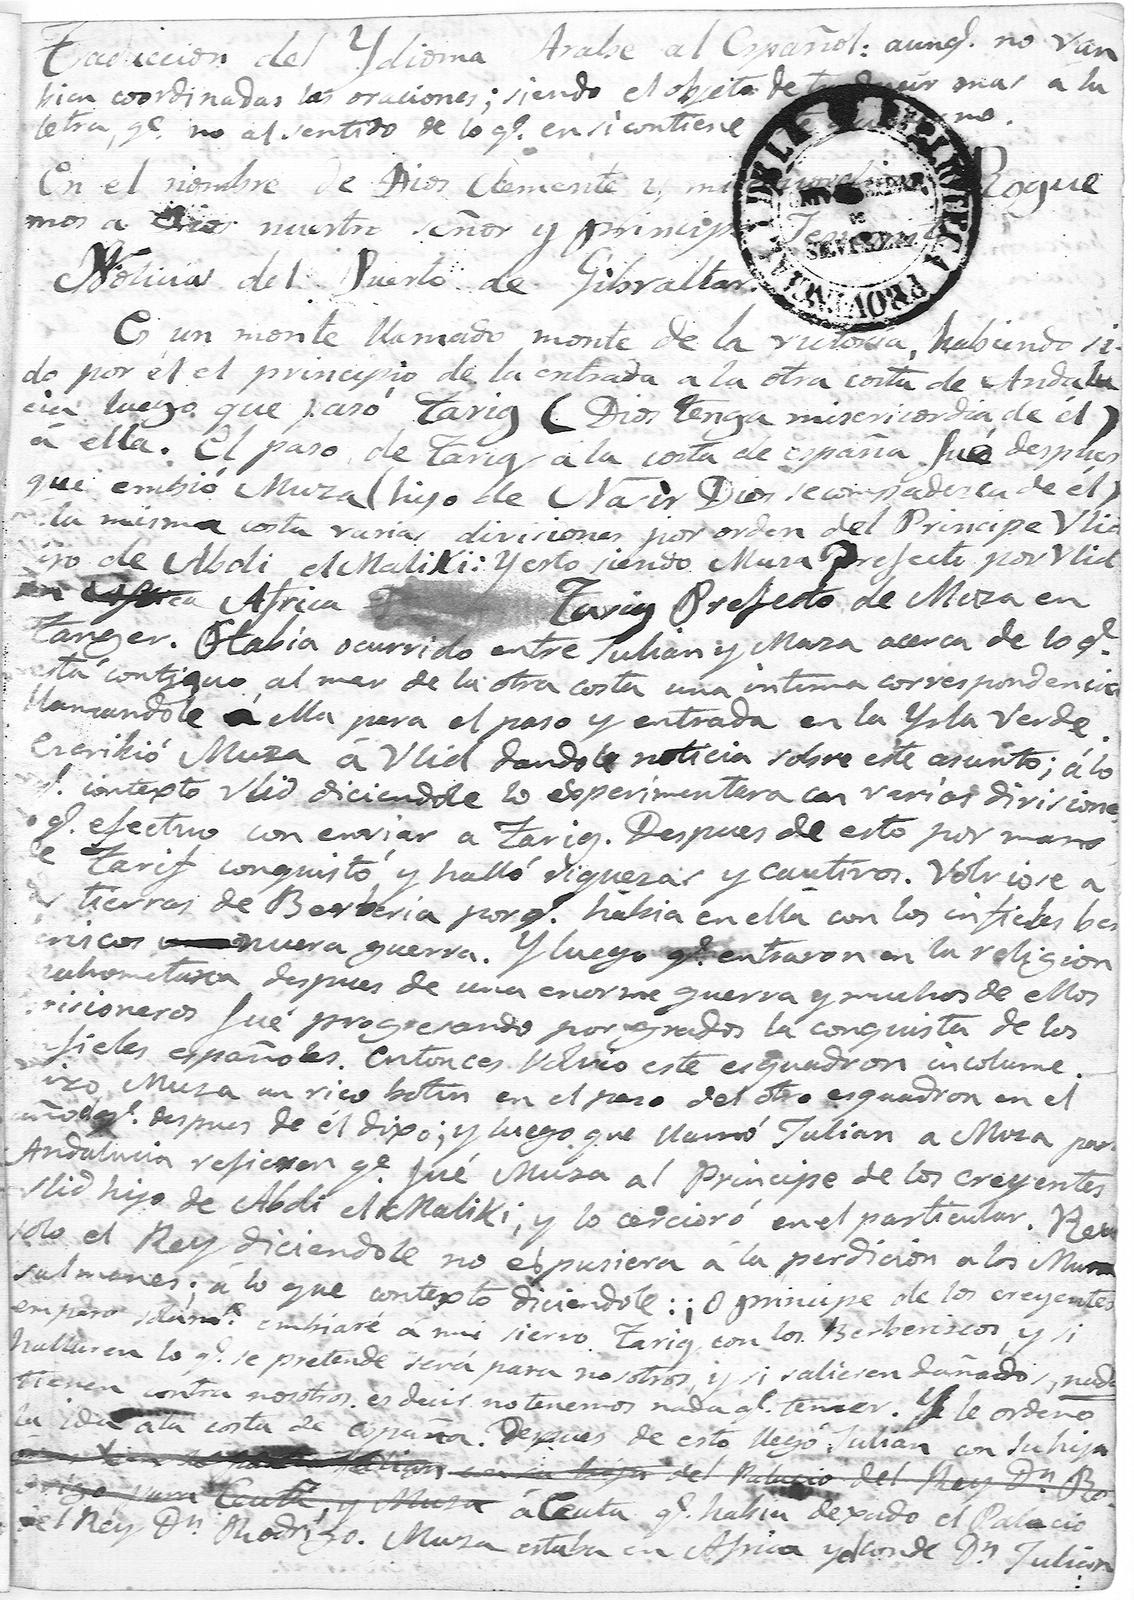 Traduccion del Ydioma Arabe al Español: aunq.e no van
bien coordinadas las oraciones; siendo el objeto de traducir mas a la
letra, q.e no al sentido de lo q.e en si contiene
En el nombre de Dios Clemente y Rogue
mos a Dios nuestro señor y principe
Noticia del Puerto de Gibraltar.
Es un monte llamado monte de la victoria, habiendo si-
do por él el principio de la entrada a la otra costa de Andalu
cia luego que pasó Tarig (Dios tenga misericordia de él)
á ella. El paso de Tarig á la costa de españa fué despues
que embió Muza (hijo de Nasir Dios se compadezca de él)
la misma costa varias divisiones por orden del Principe Vlid
ijo de Abdi el Maliki: Y esto siendo Muza Prefecto por Vlid
en Africa Tarig Prefecto de Muza en
Tanger. Habia ocurrido entre Julian y Muza acerca de lo q.e
está contiguo al mar de la otra costa una intima correspondencia
llamandole á ella para el paso y entrada en la Ysla Verde.
Escribió Muza á Vlid dandole noticia sobre este asunto; á lo
q.e contexto Vlid diciendole lo esperimentara con varias divisiones
lo q.e efectuo con enviar a Tarig. Despues de esto por mano
de Tarif conquistó y halló riquezas y cautivos. Volviose a
las tierras de Berberia porq.e habia en ella con los infieles ber
eriscos nueva guerra. Y luego q.e entraron en la religion
mahometana despues de una enorme guerra y muchos de ellos
prisioneros fué progresando por grados la conquista de los
infieles españoles. Entonces volvio este esquadron incolume.
izo Muza un rico botin en el paso del otro esquadron en el
año q.e despues de él dixo; y luego que llamó Julian a Muza par
Andalucia refieren q.e fué Muza al Principe de los creyentes
Vlid hijo de Abdi el Maliki, y lo cercioró en el particular.
solo el Rey diciendole no espusiera á la perdicion a los Musu
sulmanes; á lo que contexto diciendole: ¡O principe de los creyentes
empero solam.te embiaré á mi siervo Tarig con los Berberiscos, y si
hallaren lo q.e se pretende será para nosotros, y si salieren dañados, nada
tienen contra nosotros. es decir no tenemos nada q.e temer. Y le ordenó
la ida á la costa de España. Depues de esto llegó Julian con su hija
Julian con su hija del Palacio del Rey D.n Ro-
drigo para Ceuta, y Muza á Ceuta q.e habia dexado el Palacio
del Rey D.n Rodrigo. Muza estaba en Africa y donde D.n Julian
BIBLIOTECA PROVINCIAL